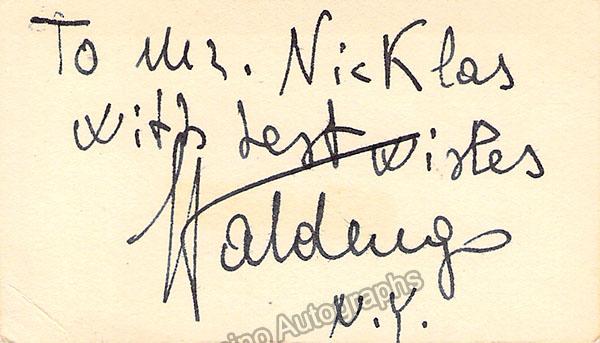 To Mr. Nicklas
with best wishes
Valdengo
N.Y.
ino Autographs